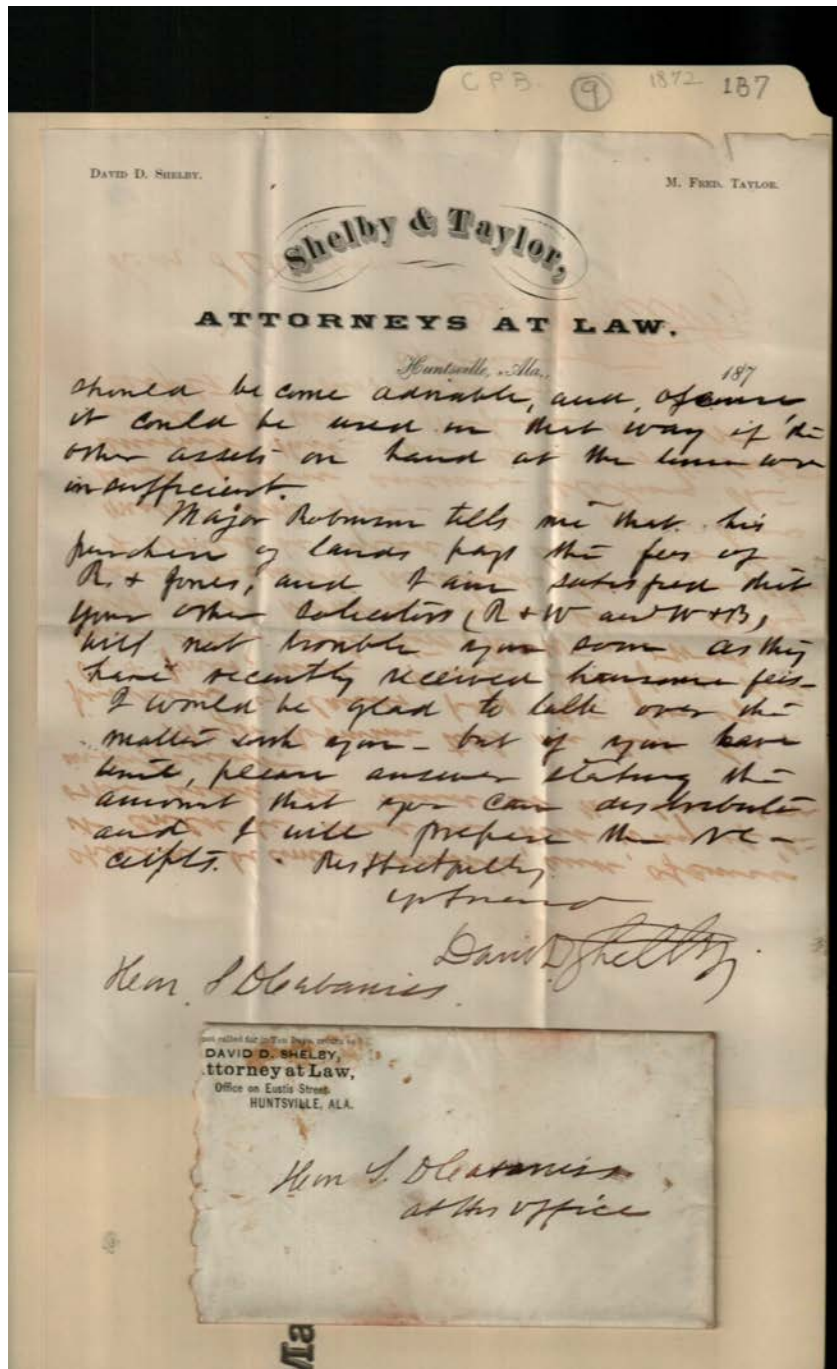 C P B. 9 1872 187
DAVID D. SHELBY.
M. FRED. TAYLOR.
Shelby & Taylor,
ATTORNEYS AT LAW.
Huntsville, Ala., 187
should become advisable, and, of course
it could be used in that way if the
other assets on hand at the time were
insufficient.
Major Robinson tells me that his
purchase of lands pays the fees of
R. & Jones, and I am satisfied that
your other solicitors, (R & W and W & B,
will not trouble you soon as they
have recently received handsome fees-
I would be glad to talk over the
matter with you - but if you have
time, please answer stating the
amount that you can distribute
and I will prepare the re-
ceipts. Respectfully
yr friend
David D. Shelby.
Hon. S D Cabaniss
not called for in Ten Days, return to
DAVID D. SHELBY,
ttorney at Law,
Office on Eustis Street
HUNTSVILLE, ALA.
Hon S. D Cabaniss
at his office